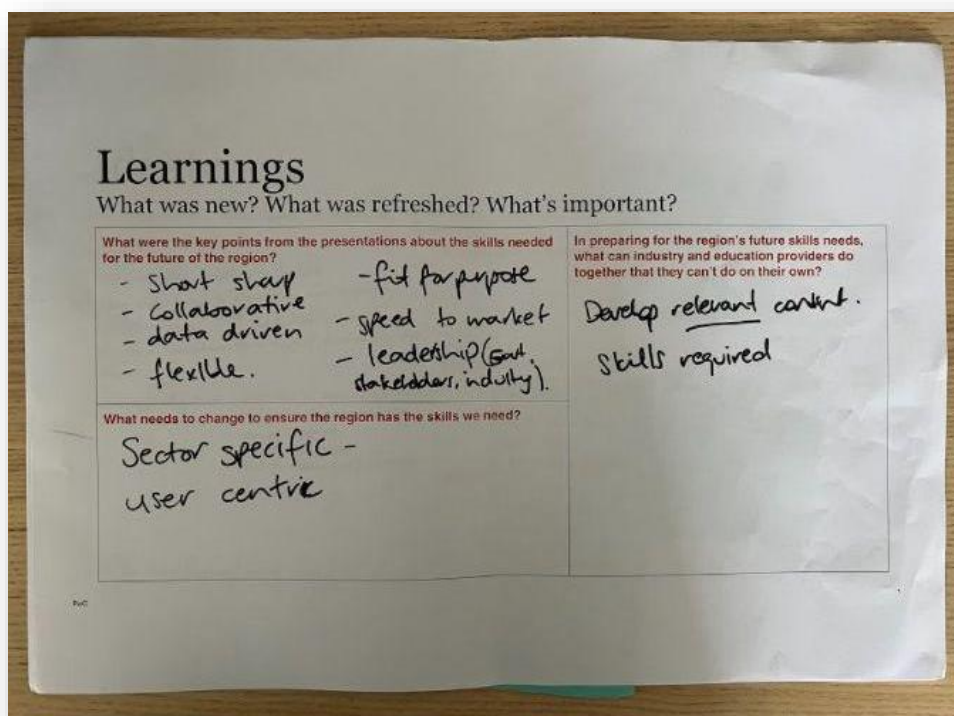 Learnings
What was new? What was refreshed? What's important?
What were the key points from the presentations about the skills needed
for the future of the region?
- Short sharp
- Collaborative
- data driven
- flexible.
- fit for purpose
- speed to market
- leadership (Govt,
stakeholders, industry).
What needs to change to ensure the region has the skills we need?
Sector specific -
user centric
In preparing for the region's future skills needs,
what can industry and education providers do
together that they can't do on their own?
Develop relevant content.
Skills required
PwC